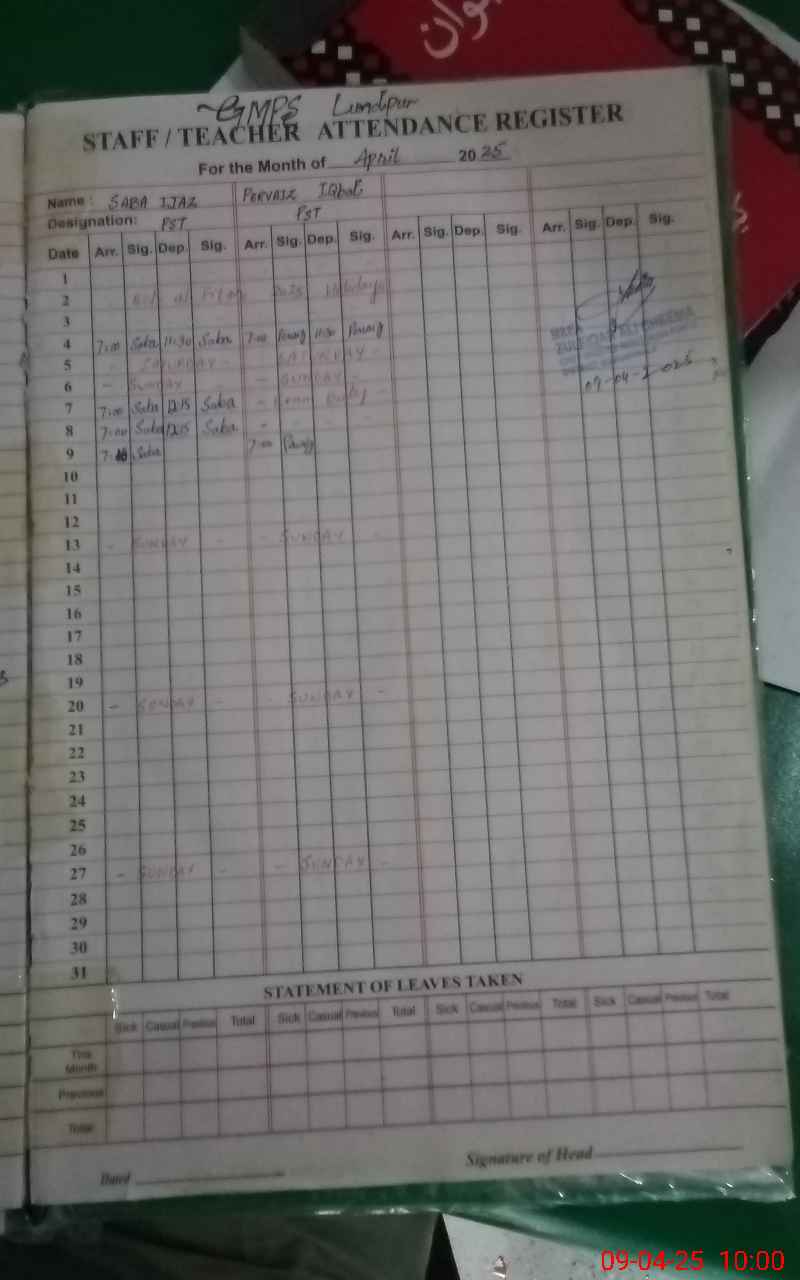 GMPS Lundpur
STAFF / TEACHER ATTENDANCE REGISTER
For the Month of April 2025
Name : SABA IJAZ PERVAIZ IQbal
Designation: PST PST
Date Arr. Sig. Dep. Sig. Arr. Sig. Dep. Sig. Arr. Sig. Dep. Sig. Arr. Sig. Dep. Sig.
1
2 Eid ul Fitar Holidays
3
4 7:00 Saba 11:30 Saba 7:00 11:30
5 - SATURDAY - - SATURDAY -
6 - SUNDAY - - SUNDAY -
7 7:00 Saba 12:15 Saba - Duty -
8 7:00 Saba 12:15 Saba
9 Saba 7:00
10
11
12
13 - SUNDAY - - SUNDAY -
14
15
16
17
18
19
20 - SUNDAY - - SUNDAY -
21
22
23
24
25
26
27 - SUNDAY - - SUNDAY -
28
29
30
31
09-04-2025
STATEMENT OF LEAVES TAKEN
Sick Casual Previous Total Sick Casual Previous Total Sick Casual Previous Total Sick Casual Previous Total
This Month
Previous
Total
Dated
Signature of Head
09-04-25 10:00